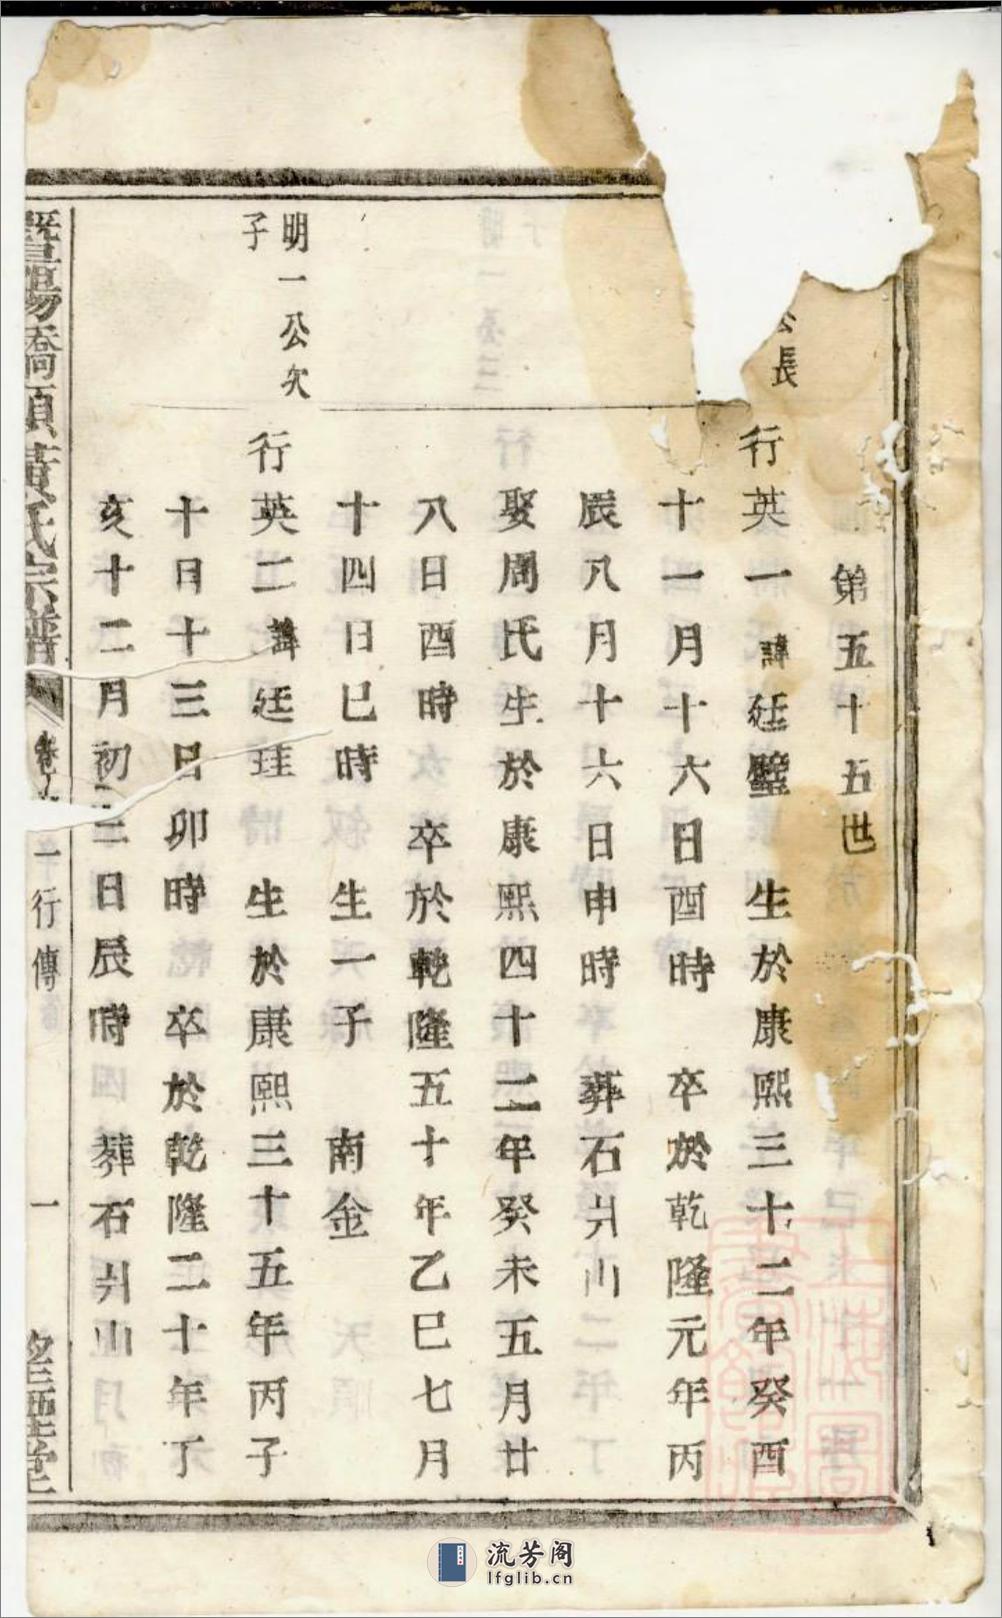 第五十五世
公長
行英一諱廷璧 生於康熙三十二年癸酉
十一月十六日酉時 卒於乾隆元年丙
辰八月十六日申時 葬石井山
娶周氏生於康熙四十二年癸未五月廿
八日酉時 卒於乾隆五十年乙巳七月
十四日巳時 生一子 南金
明一公次
子
行英二諱廷珪 生於康熙三十五年丙子
十日十三日卯時 卒於乾隆二十年丁
亥十二月初三日辰時 葬石井山
暨陽喬頭黃氏宗譜 卷 一 行傳 一 堂
流芳阁
lfglib.cn